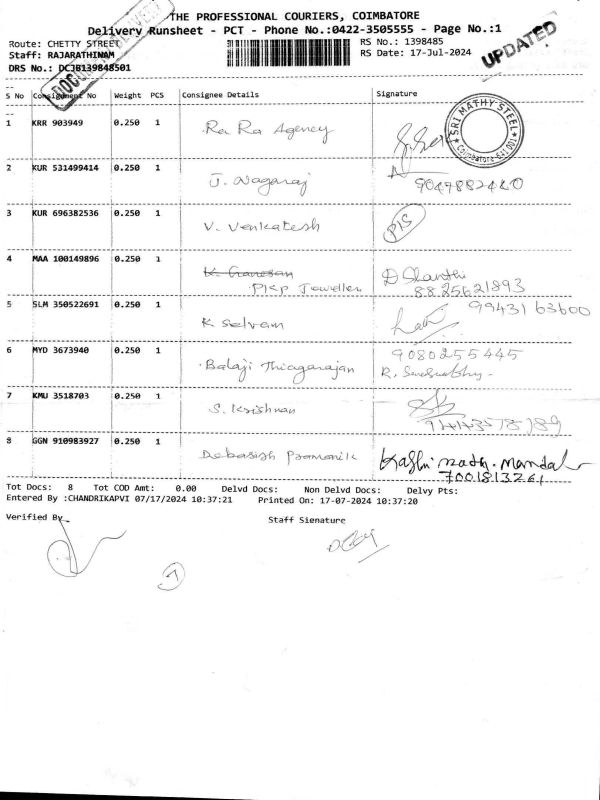 THE PROFESSIONAL COURIERS, COIMBATORE
Delivery Runsheet - PCT - Phone No.:0422-3505555 - Page No.:1
Route: CHETTY STREET
RS No.: 1398485
Staff: RAJARATHINAM
RS Date: 17-Jul-2024
UPDATED
DRS No.: DCJB139848501
S No Consignment No Weight PCS Consignee Details Signature
1 KRR 903949 0.250 1 Ra Ra Agency
SRI MATHY STEEL
Coimbatore-641 001
2 KUR 531499414 0.250 1 J. Nagaraj
9047882420
3 KUR 696382536 0.250 1 V. Venkatesh
4 MAA 100149896 0.250 1 K. Ganesan D Shanthi
PKP Jewellers 8825621893
5 SLM 350522691 0.250 1 K Selvam 9943163600
6 MYD 3673940 0.250 1 Balaji Thiagarajan 9080255445
7 KMU 3518703 0.250 1 S. Krishnan
8 GGN 910983927 0.250 1 Debasish Pramanik Kashi nath. mandal
7001813261
Tot Docs: 8 Tot COD Amt: 0.00 Delvd Docs: Non Delvd Docs: Delvy Pts:
Entered By :CHANDRIKAPVI 07/17/2024 10:37:21 Printed On: 17-07-2024 10:37:20
Verified By
Staff Signature
7